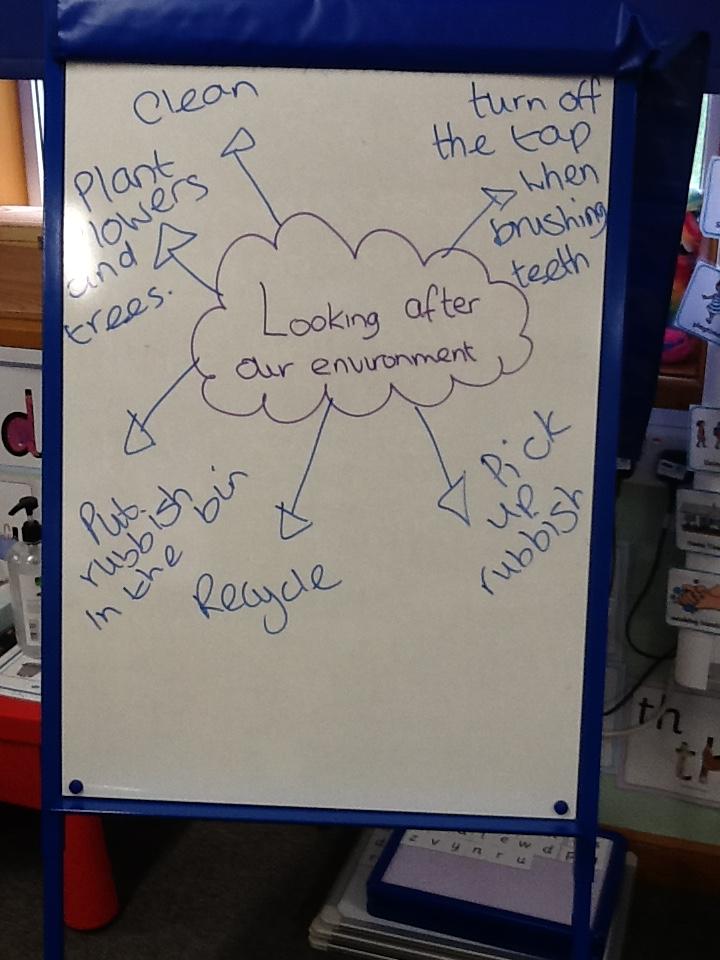 Clean
turn off
the tap
when
brushing
teeth
Plant
flowers
and
trees.
Looking after
our environment
Put
rubbish
in the bin
Recycle
Pick
up
rubbish
d
th
th